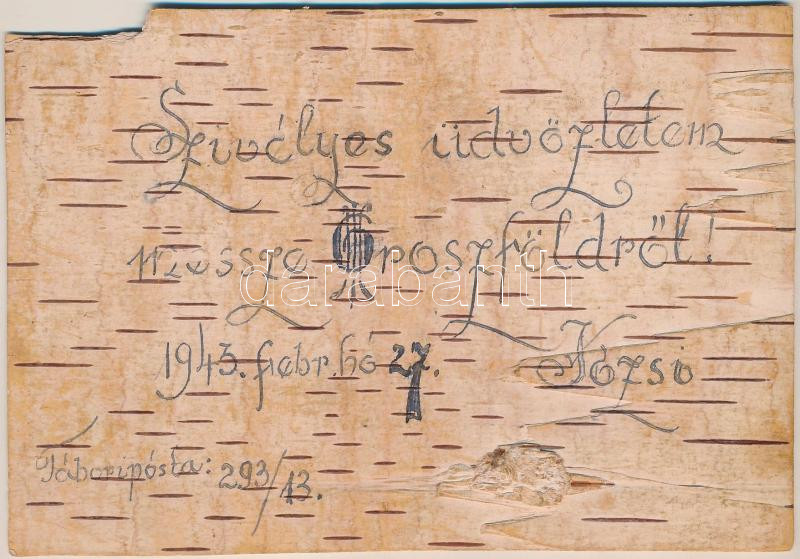 Szivélyes üdvözletem
messze Oroszföldről!
1943. febr. hó 27. Józsi
Táboripósta: 293/13.
darabanth